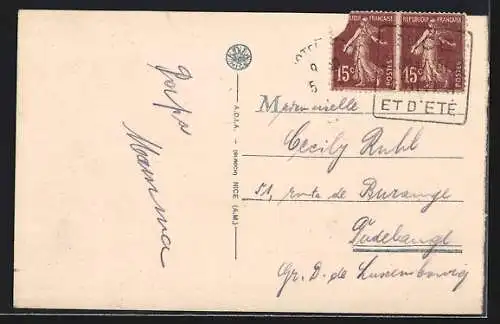 Papa
Mamma
A.D.I.A. - NICE (A.M.)
RÉPUBLIQUE FRANÇAISE
15c POSTES
15c POSTES
ET D'ÉTÉ
Mademoiselle
Cecily Ruhl
51, route de Burange
Dudelange
Gr. D. de Luxembourg